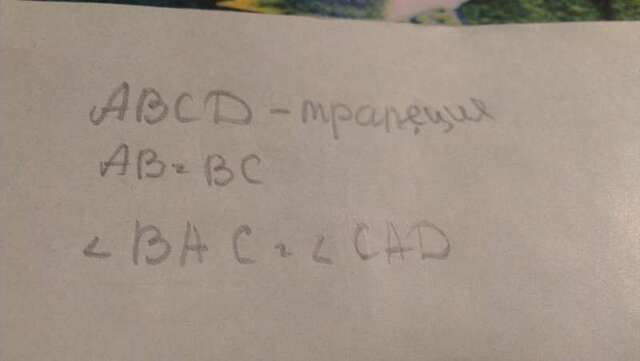 ABCD - трапеция
AB = BC
∠BAC = ∠CAD